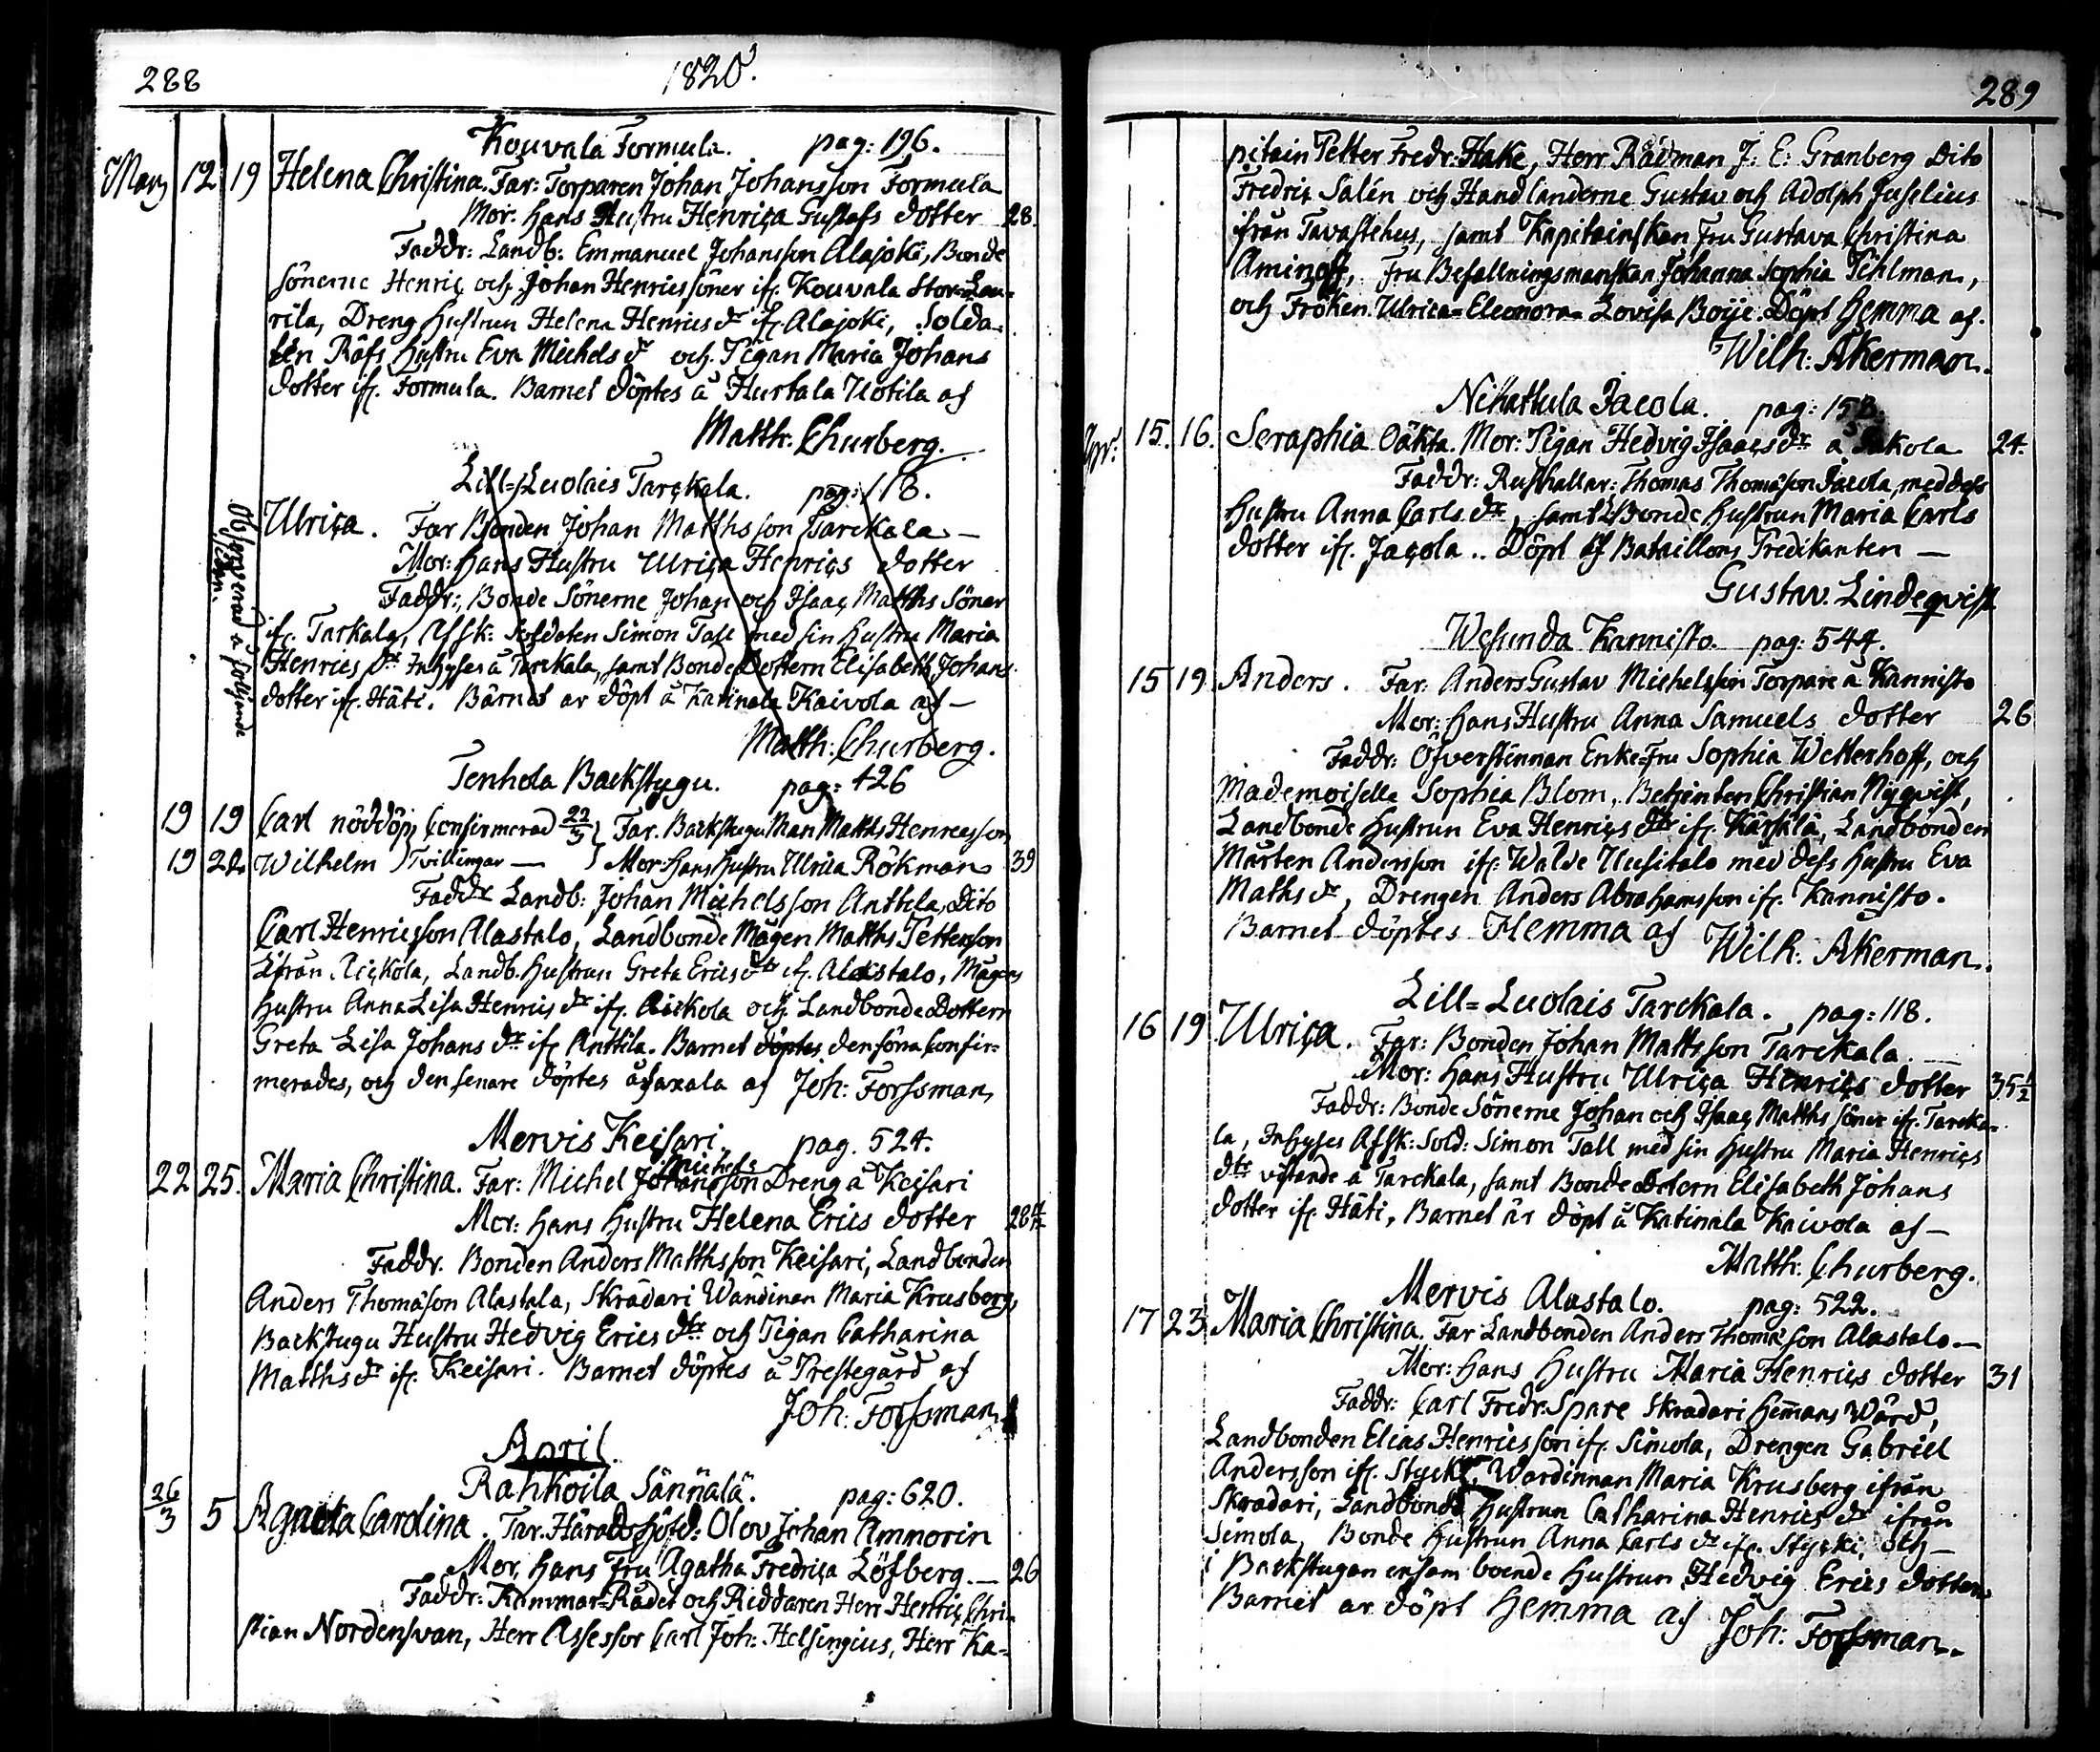 288
1820.
Kouvala Formula. pag: 196.
Mars 12 19 Helena Christina. Far: Torparen Johan Johansson Formula
Mor: hans Hustru Henrica Gustafs dotter 28.
Faddr: Landb: Emmanuel Johansson Alajoki, Bonde
sönerne Henric och Johan Henrics söner ifr. Kouvala Stor-Lau-
rila, Dreng hustrun Helena Henricsdr ifr. Alajoki, Solda-
ten Räfs Hustru Eva Michelsdr och Pigan Maria Johans
dotter ifr. Formula. Barnet döptes å Hurtala Uotila af
Matth: Churberg.
Lill-Luolais Tarckala. pag: 118.
Observerad å följande
sidan.
Ulrica. Far Bonden Johan Matthsson Tarckala —
Mor: hans Hustru Ulrica Henrics dotter
Faddr: Bonde Sönerne Johan och Isaac Matths Söner
ifr. Tarkala, Affsk: Soldaten Simon Tall med sin hustru Maria
Henricsdr Inhyses å Tarckala, samt Bonde Dottern Elisabeth Johans
dotter ifr. Häti. Barnet är döpt å Katinala Kaivola af —
Matth: Churberg.
Tenhola Backstugu. pag: 426
19 19 Carl nöddöpt Confirmerad 22/3 Far. Backstugu Man Matths Henricsson
19 22 Wilhelm Tvillingar — Mor: hans hustru Ulrica Rökman 39
Faddr Landb: Johan Michelsson Anttila, Dito
Carl Henricsson Alastalo, Landbonde Mågen Matths Pettersson
ifrån Rickola, Landb. hustrun Greta Ericsdr ifr. Alastalo, Mågens
hustru Anna Lisa Henricsdr ifr. Rickola och Landbonde Dottern
Greta Lisa Johansdr ifr. Anttila. Barnet döptes, den förra Confir-
merades, och den senare döptes å Saxala af Joh: Forssman.
Mervis Keisari. pag. 524.
22 25. Maria Christina. Far: Michel Johansson Michels Dreng å Keisari
Mor: hans hustru Helena Erics dotter 28
Faddr. Bonden Anders Matthsson Keisari, Landbonden
Anders Thomasson Alastala, Skradari Wärdinnan Maria Krusberg,
Backstugu Hustru Hedvig Ericsdtr och Pigan Catharina
Matthsdr ifr. Keisari. Barnet döptes å Prestegård af
Joh: Forssman
April.
Rahkoila Sännälä. pag: 620.
26/3 5 Agneta Carolina. Far. Häradshöfd: Olov Johan Ammorin
Mor, hans Fru Agatha Fredrica Löfberg. — 26
Faddr: Kammar-Rådet och Riddaren Herr Henric Chri-
stian Nordensvan, Herr Assessor Carl Joh: Helsingius, Herr Ka-
289
pitain Petter Fredr: Hake, Herr Rådman J: E: Granberg Dito
Fredric Salén och Handlanderne Gustav och Adolph Juselius
ifrån Tavastehus, samt Kapitainskan Fru Gustava Christina
Aminoff, Fru Befallningsmanskan Johanna Sophia Pihlman,
och Fröken Ulrica Eleonora Lovisa Boije. Döpt Hemma af.
Wilh: Åkerman.
Nihattula Jacola. pag: 158.
Apr: 15. 16. Seraphia Oäkta. Mor: Pigan Hedvig Isaacsdtr å Jakola 24.
Faddr: Rusthållar: Thomas Thomasson Jacola, med dess
hustru Anna Carlsdtr, samt Bonde hustrun Maria Carls
dotter ifr. Jacola. Döpt af Bataillons Predikanten —
Gustav. Lindeqvist
Wesunda Kannisto. pag: 544.
15 19 Anders. Far: Anders Gustav Michelsson Torpare å Kannisto
Mor: hans Hustru Anna Samuels dotter 26
Faddr: Öfverstinnan Enke-Fru Sophia Wetterhoff, och
Mademoiselle Sophia Blom, Betjenten Christian Nyqvist,
Landbonde hustrun Eva Henricsdtr ifr. Kärsälä, Landbonden
Mårten Andersson ifr. Walde Uusitalo med dess hustru Eva
Mathsdr, Drengen Anders Abrahamsson ifr. Kannisto.
Barnet döptes Hemma af Wilh: Åkerman.
Lill-Luolais Tarckala. pag: 118.
16 19 Ulrica. Far: Bonden Johan Mattsson Tarckala. —
Mor: hans Hustru Ulrica Henrics dotter 35½
Faddr: Bonde Sönerne Johan och Isaac Matths söner ifr. Tarcka-
la, Inhyses Affsk: Sold: Simon Tall med sin hustru Maria Henrics
dtr vistande å Tarckala, samt Bonde Dotern Elisabeth Johans
dotter ifr. Häti, Barnet är döpt å Katinala Kaivola af —
Matth: Churberg.
Mervis Alastalo. pag: 522.
17 23 Maria Christina. Far Landbonden Anders Thomasson Alastalo —
Mor: hans Hustru Maria Henrics dotter 31
Faddr: Carl Fredr. Spare Skradari hemans Wärd,
Landbonden Elias Henricsson ifr. Simola, Drengen Gabriel
Andersson ifr. Stycki, Wärdinnan Maria Krusberg ifrån
Skradari, Landbonde Hustrun Catharina Henricsdr ifrån
Simola, Bonde Hustrun Anna Carlsdr ifr. Stycki, och —
i Backstugan ensam boende hustrun Hedvig Erics dotter
Barnet är döpt hemma af Joh: Forssman.